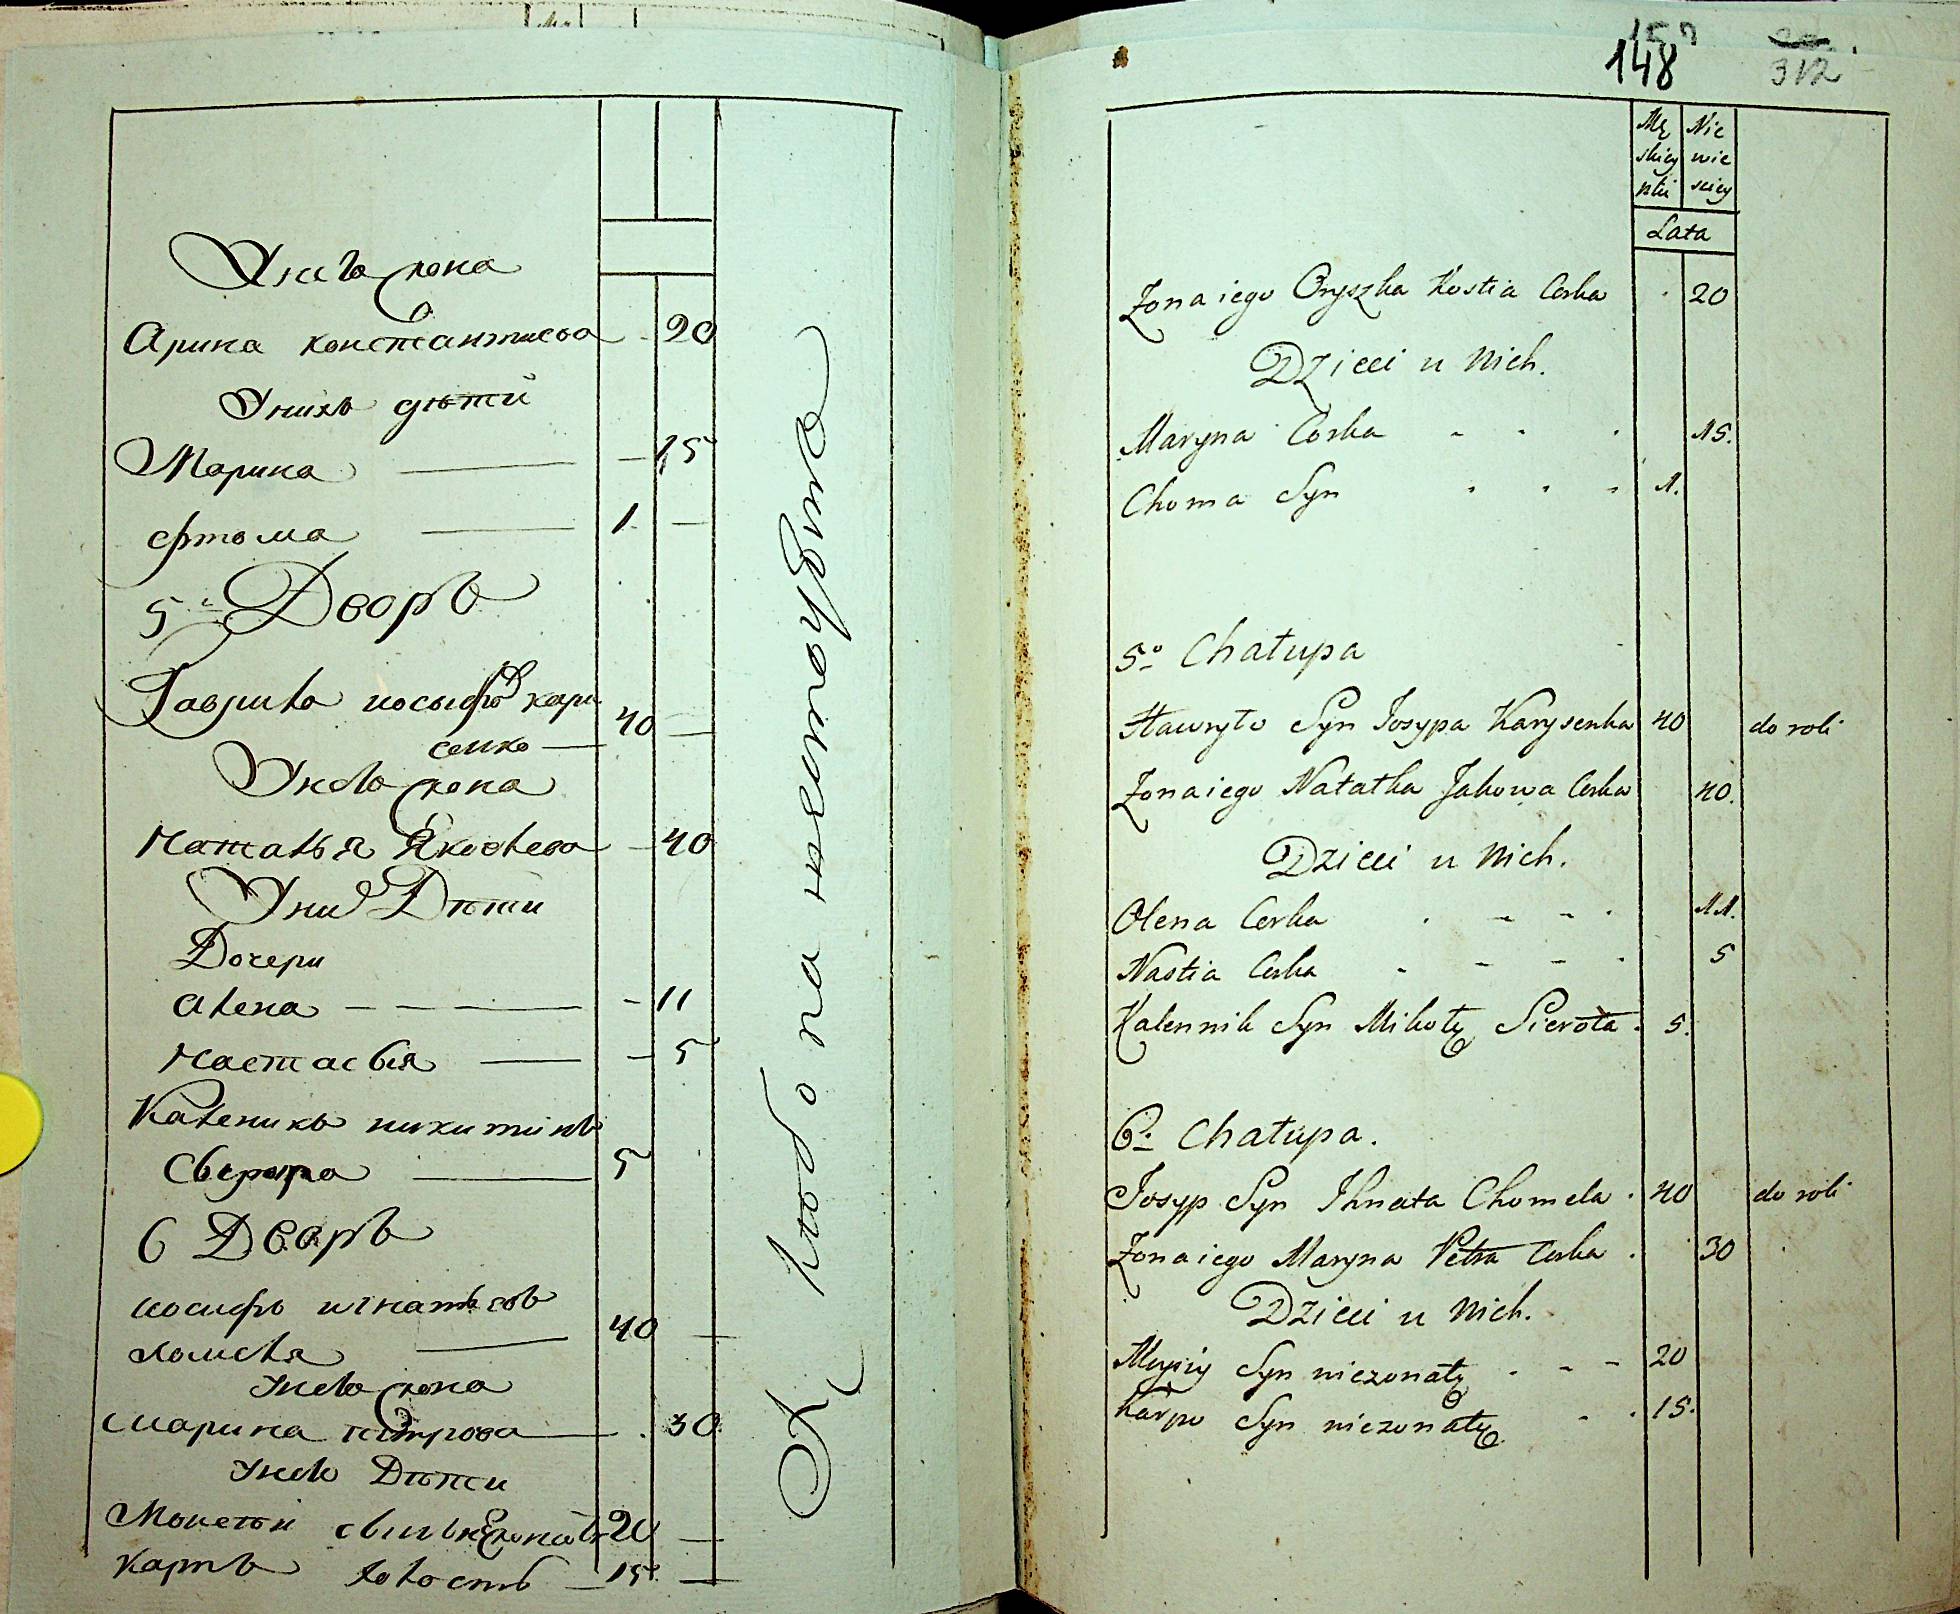 У него жена
Арина константинова - 20
У нихъ дѣти
Марина - 15
Фтома 1 -
5й Дворъ
Гаврила иосыфов кари
сенко 40 -
У него жена
Наталья Яковлева - 40
У них Дѣти
Дочери
Алена - 11
Настасья - 5
Каленикъ никитинъ
Сверора 5
6 Дворъ
иосифъ игнатьев
хомеля 40 -
У него жена
марина петрова - 30
У нев Дѣти
Моисеи сынъ неженатъ 20 -
Карпъ холостъ 15 -
К хлебопашеству
148
312
Mę Nie
skiey wie
płci sciey
Lata
Zona iego Oryszka Kostia Corka 20
Dzieci u Nich.
Maryna Corka 15.
Choma Syn 1.
5o Chałupa
Hawryło Syn Josypa Karysenka 40 do roli
Zona iego Natałka Jakowa Corka 40.
Dzieci u Nich.
Ołena Corka 11.
Nastia Corka 5
Kalennik Syn Mikoły Sierota 5.
6. Chałupa.
Josyp Syn Ihnata Chomela 40 do roli
Zona iego Maryna Petra Corka 30
Dzieci u Nich.
Moysiy Syn niezonaty 20
Karpo Syn niezonaty 15.